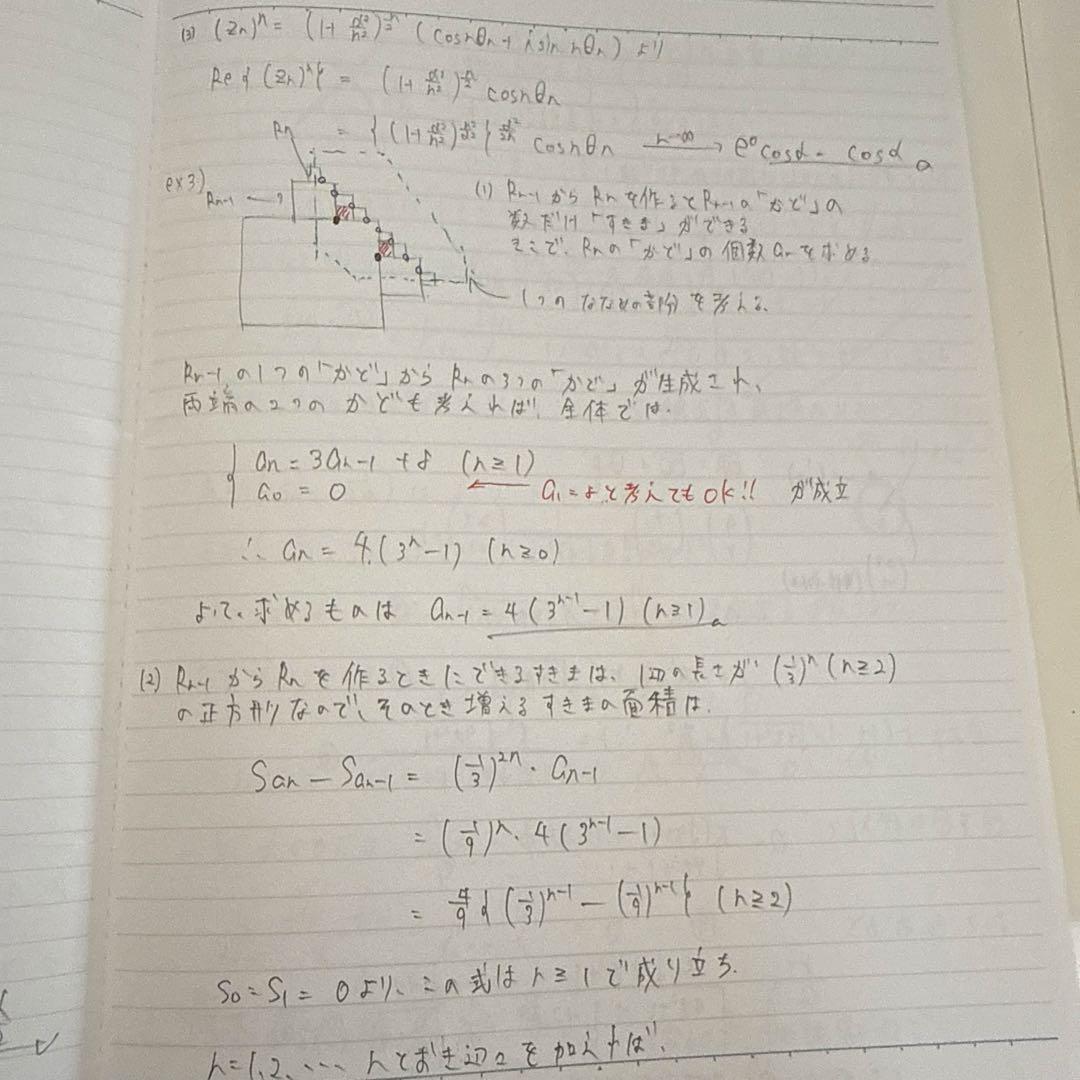 (3) (Zn)^n = (1+ α²/n²)^(n/2) (cos nθn + i sin nθn) より
Re{(Zn)^n} = (1+ α²/n²)^(n/2) cos nθn
= {(1+ α²/n²)^(n²/α²)}^(α²/2n) cos nθn →(n→∞) e⁰cosα = cosα
ex3)
Rn
Rn-1
(1) Rn-1 から Rn を作るとRn-1の「かど」の
数だけ「すきま」ができる
そこで、Rnの「かど」の個数 an を求める
1つのななめの部分を考える.
Rn-1 の1つの「かど」から Rn の3つの「かど」が生成され、
両端の2つのかども考えれば、全体では.
{ an = 3an-1 + 8 (n≧1)
a0 = 0 ← a1=8と考えてもOK!! が成立
∴ an = 4.(3^n-1) (n≧0)
よって、求めるものは an-1 = 4(3^(n-1)-1) (n≧1)
(2) Rn-1 から Rn を作るときにできるすきまは、1辺の長さが (1/3)^n (n≧2)
の正方形なので、そのとき増えるすきまの面積は.
San - San-1 = (1/3)^2n · an-1
= (1/9)^n · 4(3^(n-1)-1)
= 4/9 {(1/3)^(n-1) - (1/9)^(n-1)} (n≧2)
S0=S1=0より、この式は n≧1で成り立ち.
n=1,2,… nとおき辺々を加えれば.